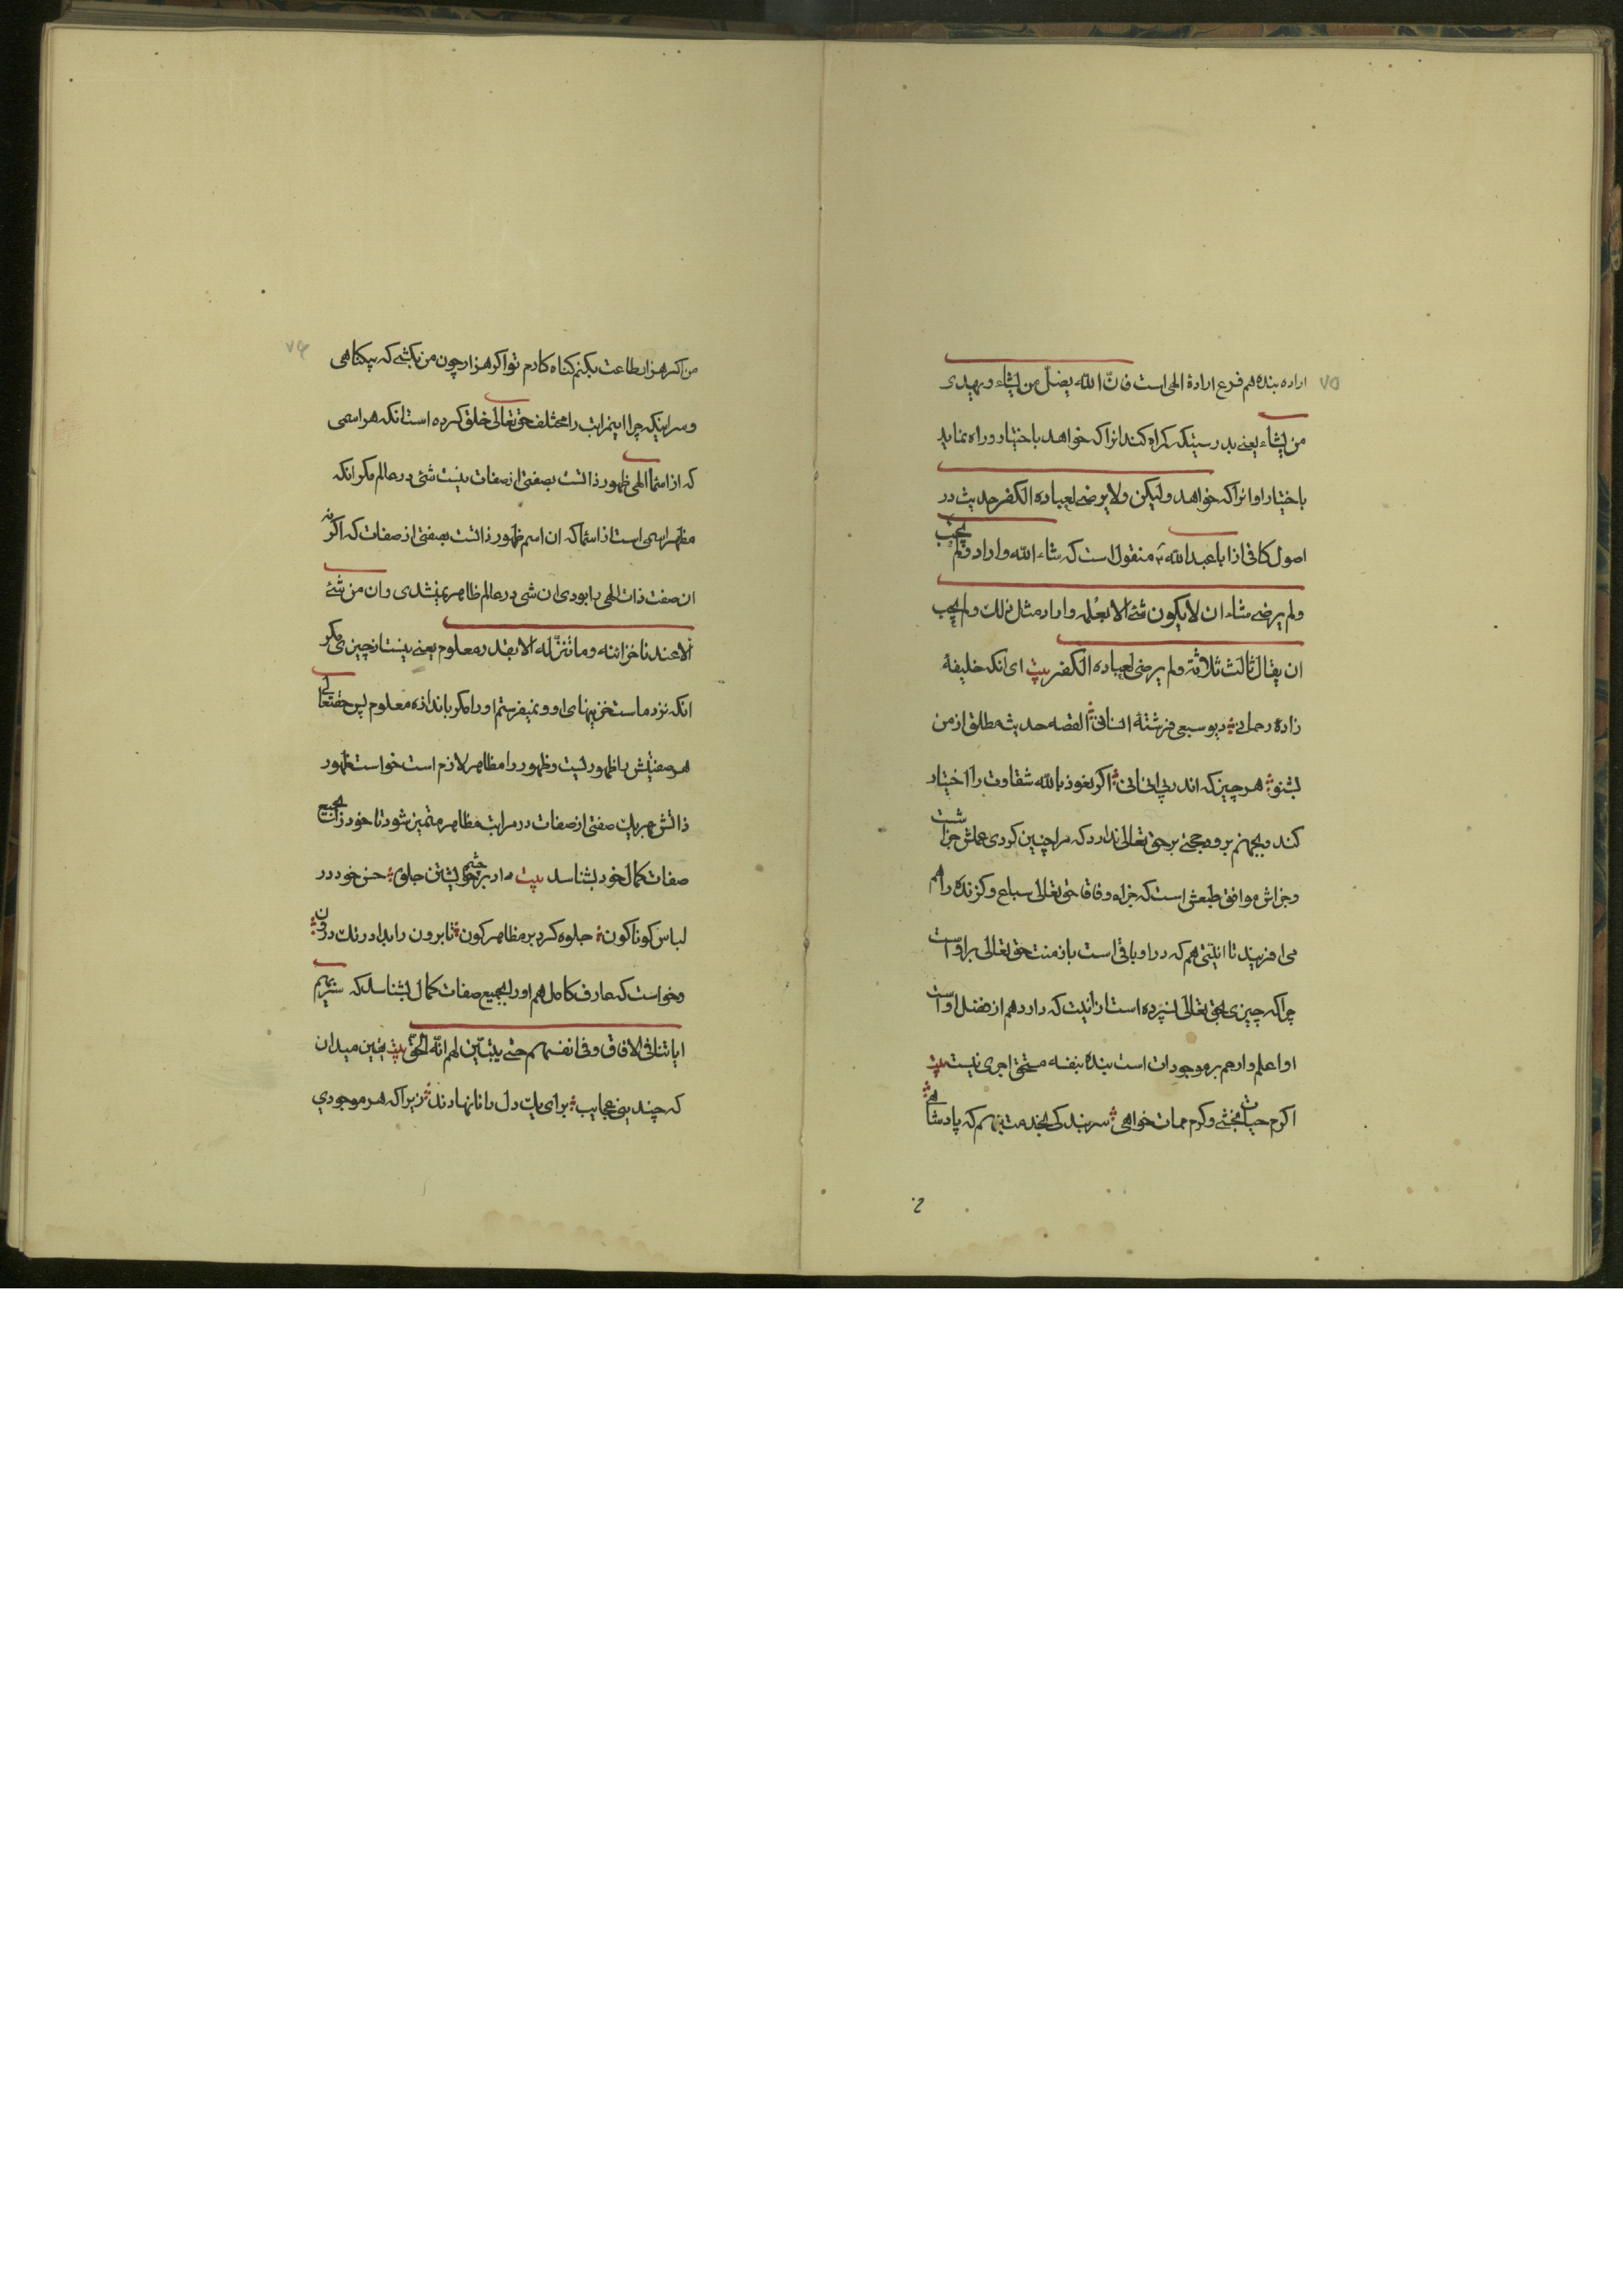 ۷۵
اراده بنده هم فرع ارادهٔ الهی است فانّ اللّه یضلّ من یشاء و یهدی
من یشاء یعنی بدرستیکه کمراه کند انرا که خواهد باختیار و راه نماید
باختیار او انرا که خواهد ولیکن ولا یرضی لعباده الکفر حدیث در
اصول کافی از ابا عبد اللّه ع منقول است که شاء اللّه و اراد و لم یحب
ولم یرضی شاء ان لا یکون شئ الا بعلمه و اراد مثل ذلک ولم یحب
ان یقال ثالث ثلاثة ولم یرضی لعباده الکفر بیت ای انکه خلیفهٔ
زادهٔ رحمانی دیو سبعی فرشتهٔ انسانی القصه حدیث مطلق از من
بشنو هر چیز که اندر پی انی انی اکر نعوذ بالله شقاوت را اختیار
کند و بجهنم برود حجتی بر حق تعالی ندارد که مرا چنین کردی عملش جزاشت
وجزاش موافق طبعش است که جزاء وفاقا حق تعالی سباع و کزنده را هم
می افریند تا انیتی هم که در او باقی است باز منت حق تعالی بر اوست
چرا که چیزی بحق تعالی نسپرده است از انیت که دارد هم از فضل اوست
او اعلم و ارحم بر موجودات است بنده بنفسه مستحق اجری نیست بیت
اکرم حیات بخشی و کرم ممات خواهی سر بندکی بخدمت بنهم که پادشاهی
۷۶
من اکر هزار طاعت بکنم کناه کارم تو اکر هزار چون من بکشی که بیکناهی
و سر اینکه چرا این مراتب را مختلف حق تعالی خلق کرده است انکه هر اسمی
که از اسماء الهی ظهور ذاتست بصفتی از صفات نیست شئی در عالم مکر انکه
مظهر اسمی است از اسما که ان اسم ظهور ذاتست بصفتی از صفات که اکر نه
ان صفت ذات الهی را بودی ان شی در عالم ظاهر نمیشدی و ان من شئ
الا عندنا خزائنه و ما ننزّله الا بقدر معلوم یعنی نیست از چیزی مکر
انکه نزد ماست خزینهای او و نمیفرستم او را مکر باندازه معلوم پس حقتعالی
هر صفتیش را ظهوریست و ظهور را مظاهر لازم است خواست ظهور
ذاتش بهر یک صفتی از صفات در مراتب مظاهر متمیز شود تا خود را بجمیع
صفات کمال خود بشناسد بیت داد بر چشم خویشتن جلوه حسن خود در
لباس کوناکون جلوه کرد بر مظاهر کون تا برون را بداد رنک درون
و خواست که عارف کامل هم او را بجمیع صفات کمال بشناسد که سنریهم
ایاتنا فی الافاق و فی انفسهم حتی یتبیّن لهم انّه الحقّ بیت یقین میدان
که چندینی عجایب برای یک دل دانا نهادند زیرا که هر موجودی